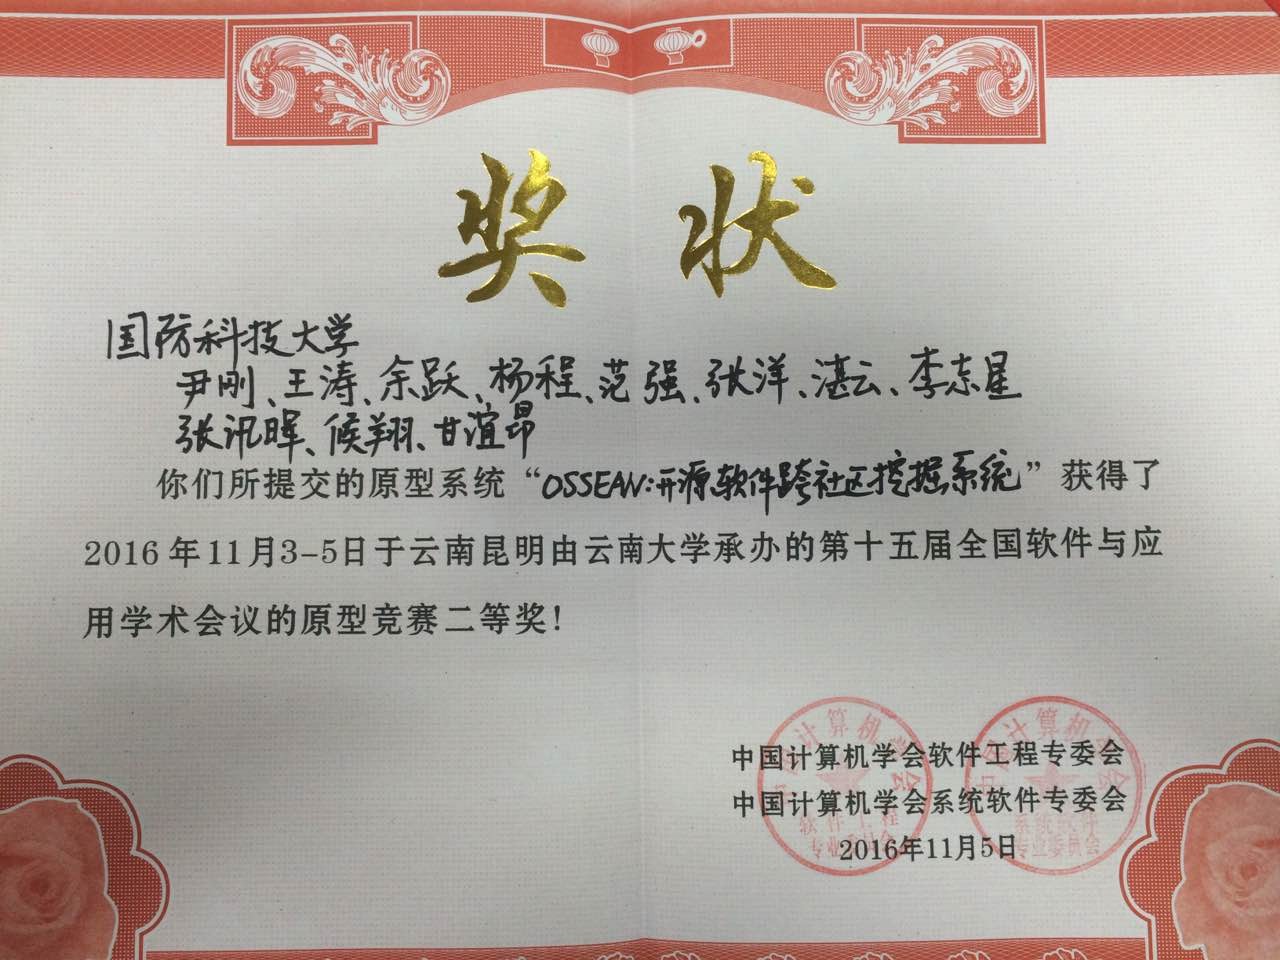 奖状
国防科技大学
尹刚、王涛、余跃、杨程、范强、张洋、湛云、李志星
张迅晖、侯翔、甘渲昂
你们所提交的原型系统“OSSEAN:开源软件跨社区挖掘系统”获得了
2016年11月3-5日于云南昆明由云南大学承办的第十五届全国软件与应
用学术会议的原型竞赛二等奖!
中国计算机学会软件工程专委会
中国计算机学会系统软件专委会
2016年11月5日
中国计算机学会
软件工程
专业委员会
中国计算机学会
系统软件
专业委员会